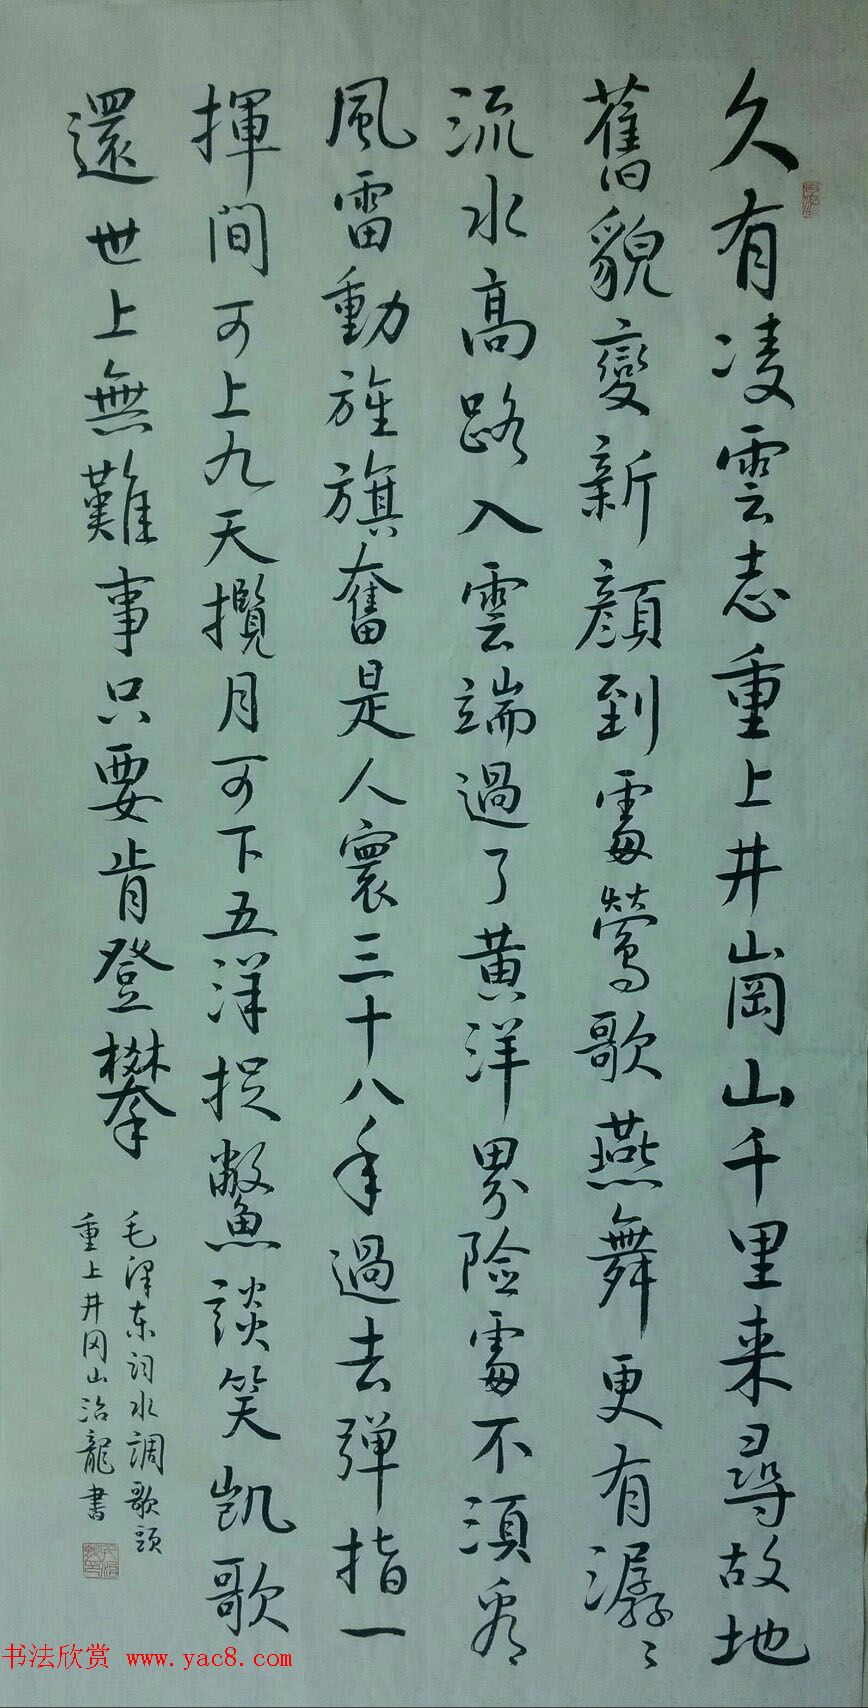 久有凌雲志重上井崗山千里来尋故地
舊貌變新顔到處鶯歌燕舞更有潺〻
流水高路入雲端過了黄洋界险處不須看
風雷動旌旗奮是人寰三十八年過去弹指一
揮間可上九天攬月可下五洋捉鱉談笑凱歌
還世上無難事只要肯登攀
毛泽东词水調歌頭
重上井冈山治龍書
书法欣赏 www.yac8.com